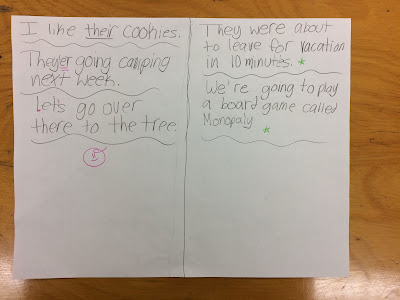 I like their cookies.
They'er going camping
next week.
Let's go over
there to the tree.
They were about
to leave for vacation
in 10 minutes. *
We're going to play
a board game called
Monopaly
*